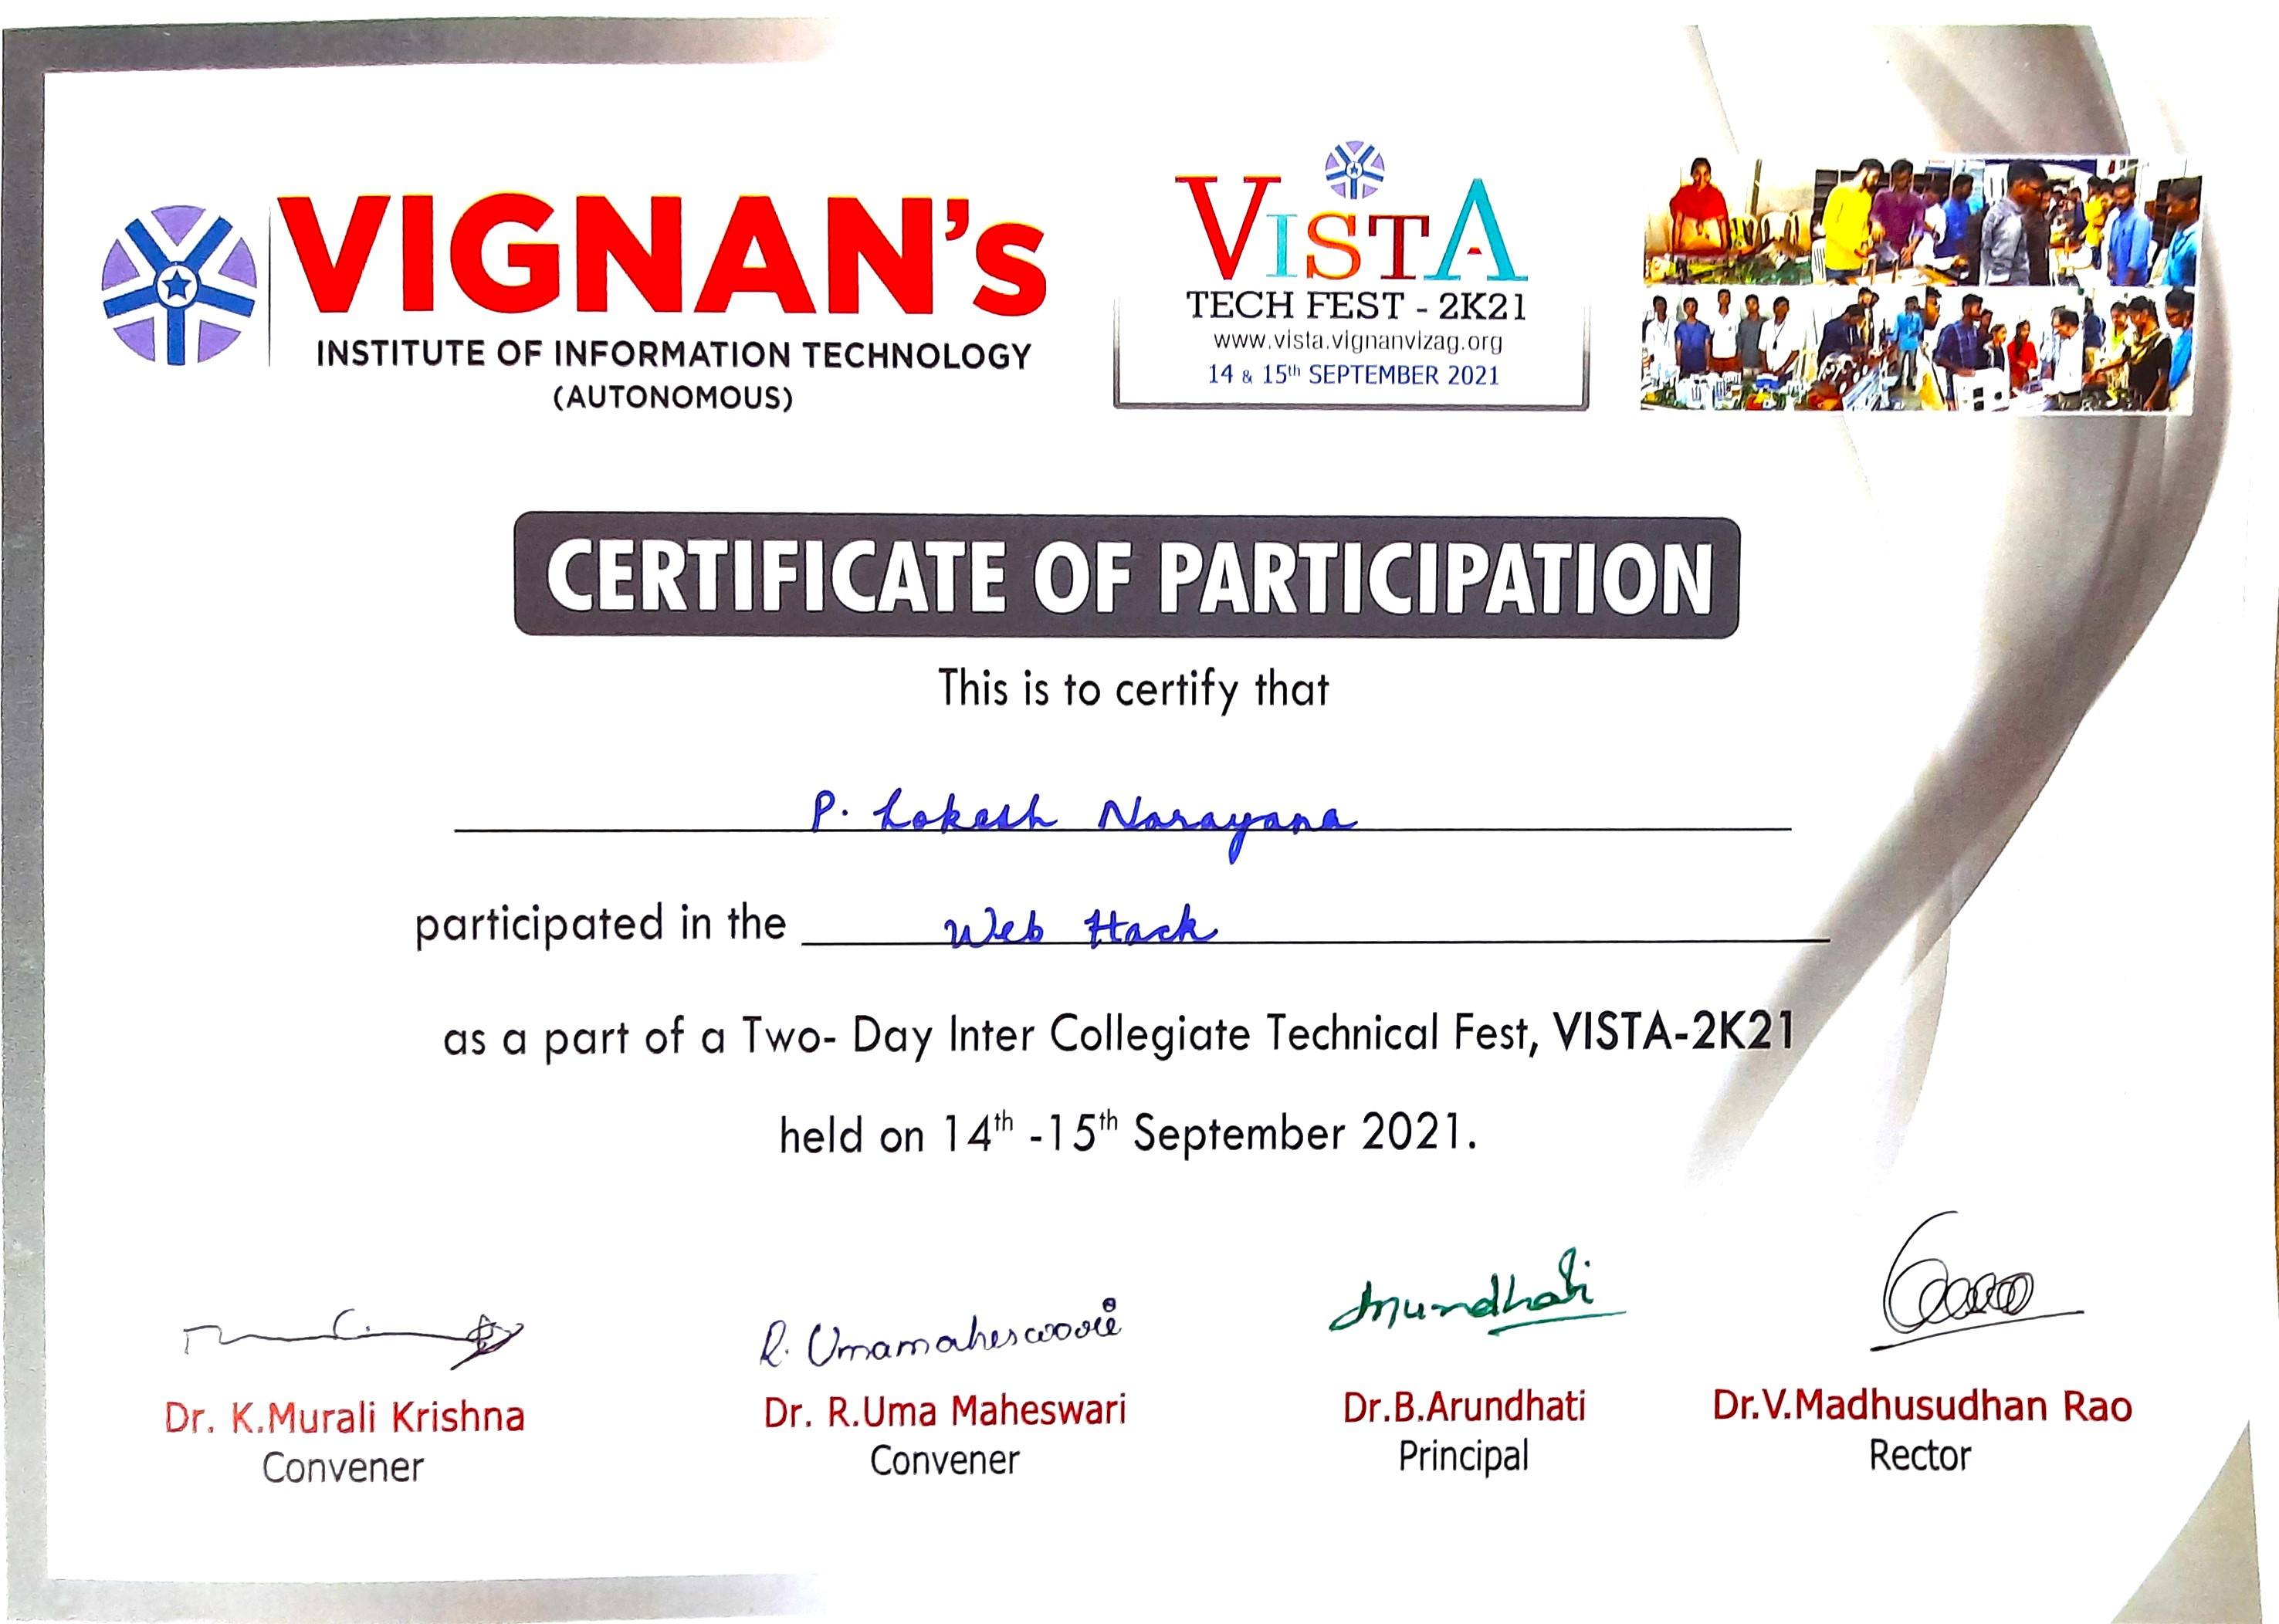 VIGNAN's
INSTITUTE OF INFORMATION TECHNOLOGY
(AUTONOMOUS)
VISTA
TECH FEST - 2K21
www.vista.vignanvizag.org
14 & 15th SEPTEMBER 2021
CERTIFICATE OF PARTICIPATION
This is to certify that
P. Lokesh Narayana
participated in the Web Hack
as a part of a Two- Day Inter Collegiate Technical Fest, VISTA-2K21
held on 14th -15th September 2021.
R. Umamaheswari Arundhati
Dr. K.Murali Krishna Dr. R.Uma Maheswari Dr.B.Arundhati Dr.V.Madhusudhan Rao
Convener Convener Principal Rector